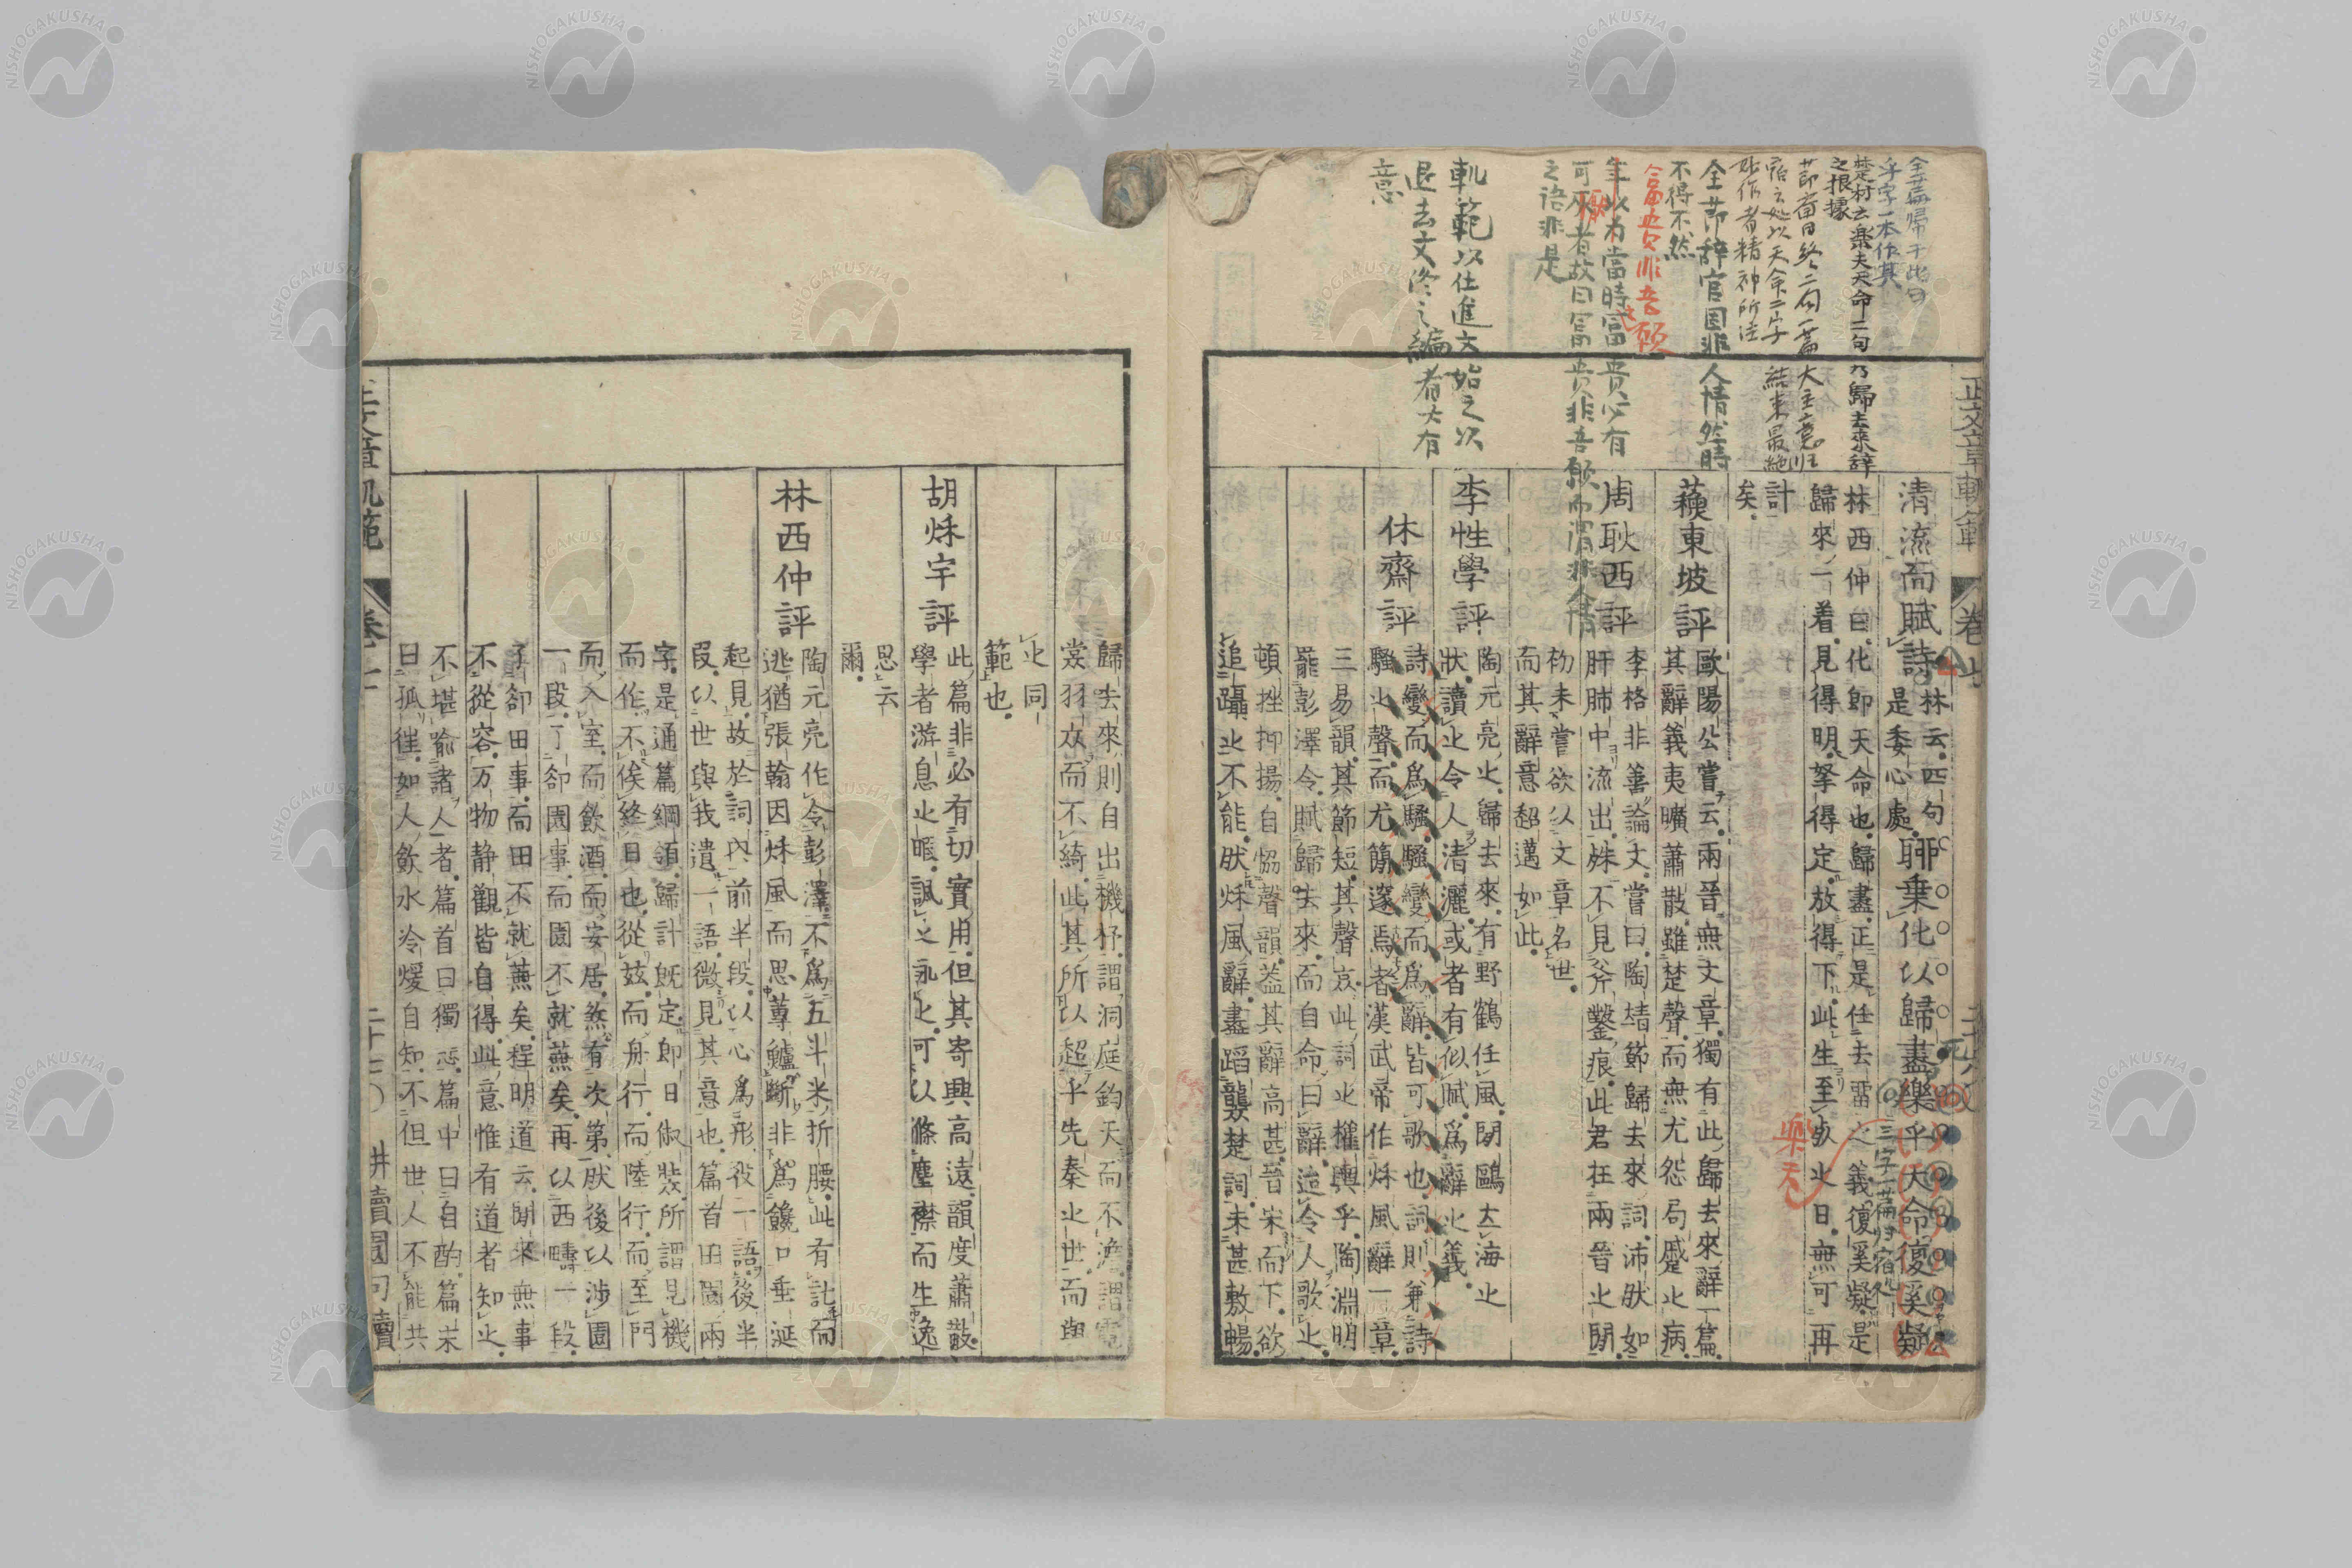 正文章軌範 卷七
全篇歸于此句
乎字一本作其
楚村云樂夫天命二句乃歸去來辭
之根據
節齋曰終二句一篇大主意归
宿云始以天命二字結末最絶
好作者精神所注
全節辞官固非人情然時
不得不然
富贵非吾愿
年以为當時富贵必有
可厭者故曰冨贵非吾願而謂非人情
之语非是
軌範以仕進文始之以
退去文终之編者大有
意
清流而賦詩
林云四句
是委心處
聊乗化以歸盡樂乎天命復奚疑
三字一篇归宿处
林西仲曰化卽天命也歸盡正是任去畱之義復奚疑是
歸來一着見得明拏得定放得下此生至欤之日無可再
計
矣
樂天
蘇東坡評
歐陽公嘗云兩晉無文章獨有此歸去來辭一篇
其辭義夷曠蕭散雖楚聲而無尤怨局蹙之病
周耿西評
李格非善論文嘗曰陶靖節歸去來詞沛肰如
肝肺中流出姝不見斧鑿痕此君在兩晉之閒
初未嘗欲以文章名世
而其辭意超邁如此
李性學評
陶元亮之歸去來有野鶴任風閒鷗立海之
狀讀之令人清灑或者有似賦爲辭之義
休齋評
詩變而爲騷騷變而爲辭皆可歌也詞則兼詩
騷之聲而尤簡邃焉者漢武帝作秌風辭一章
三易韻其節短其聲哀此詞之權輿乎陶淵明
罷彭澤令賦歸去來而自命曰辭迨令人歌之
頓挫抑揚自恊聲韻葢其辭高甚晉宋而下欲
追躡之不能肰秌風辭盡蹈襲楚詞未甚敷暢
歸去來則自出機杼謂洞庭鈞天而不澹謂霓
裳羽衣而不綺此其所以超乎先秦之世而與
之同
範也
胡秌宇評
此篇非必有切實用但其寄興高遠韻度蕭散
學者游息之暇諷之詠之可以滌塵襟而生逸
思云
爾
林西仲評
陶元亮作令彭澤不爲五斗米折腰此有託而
逃猶張翰因秌風而思蓴鱸斷非爲饞口垂涎
起見故於詞內前半段以心爲形役一語後半
叚以世與我遺一語微見其意也篇首田園兩
字是通篇綱領歸計旣定卽日俶裝所謂見機
而作不俟終日也從茲而舟行而陸行而至門
而入室而飲酒而安居煞有次第肰後以涉園
一段了卻園事而園不就蕪矣再以西疇一段
了卻田事而田不就蕪矣程明道云閒來無事
不從容万物静觀皆自得此意惟有道者知之
不堪喻諸人者篇首曰獨悲篇中曰自酌篇末
曰孤徃如人飲水冷煖自知不但世人不能共
卷七
二十七